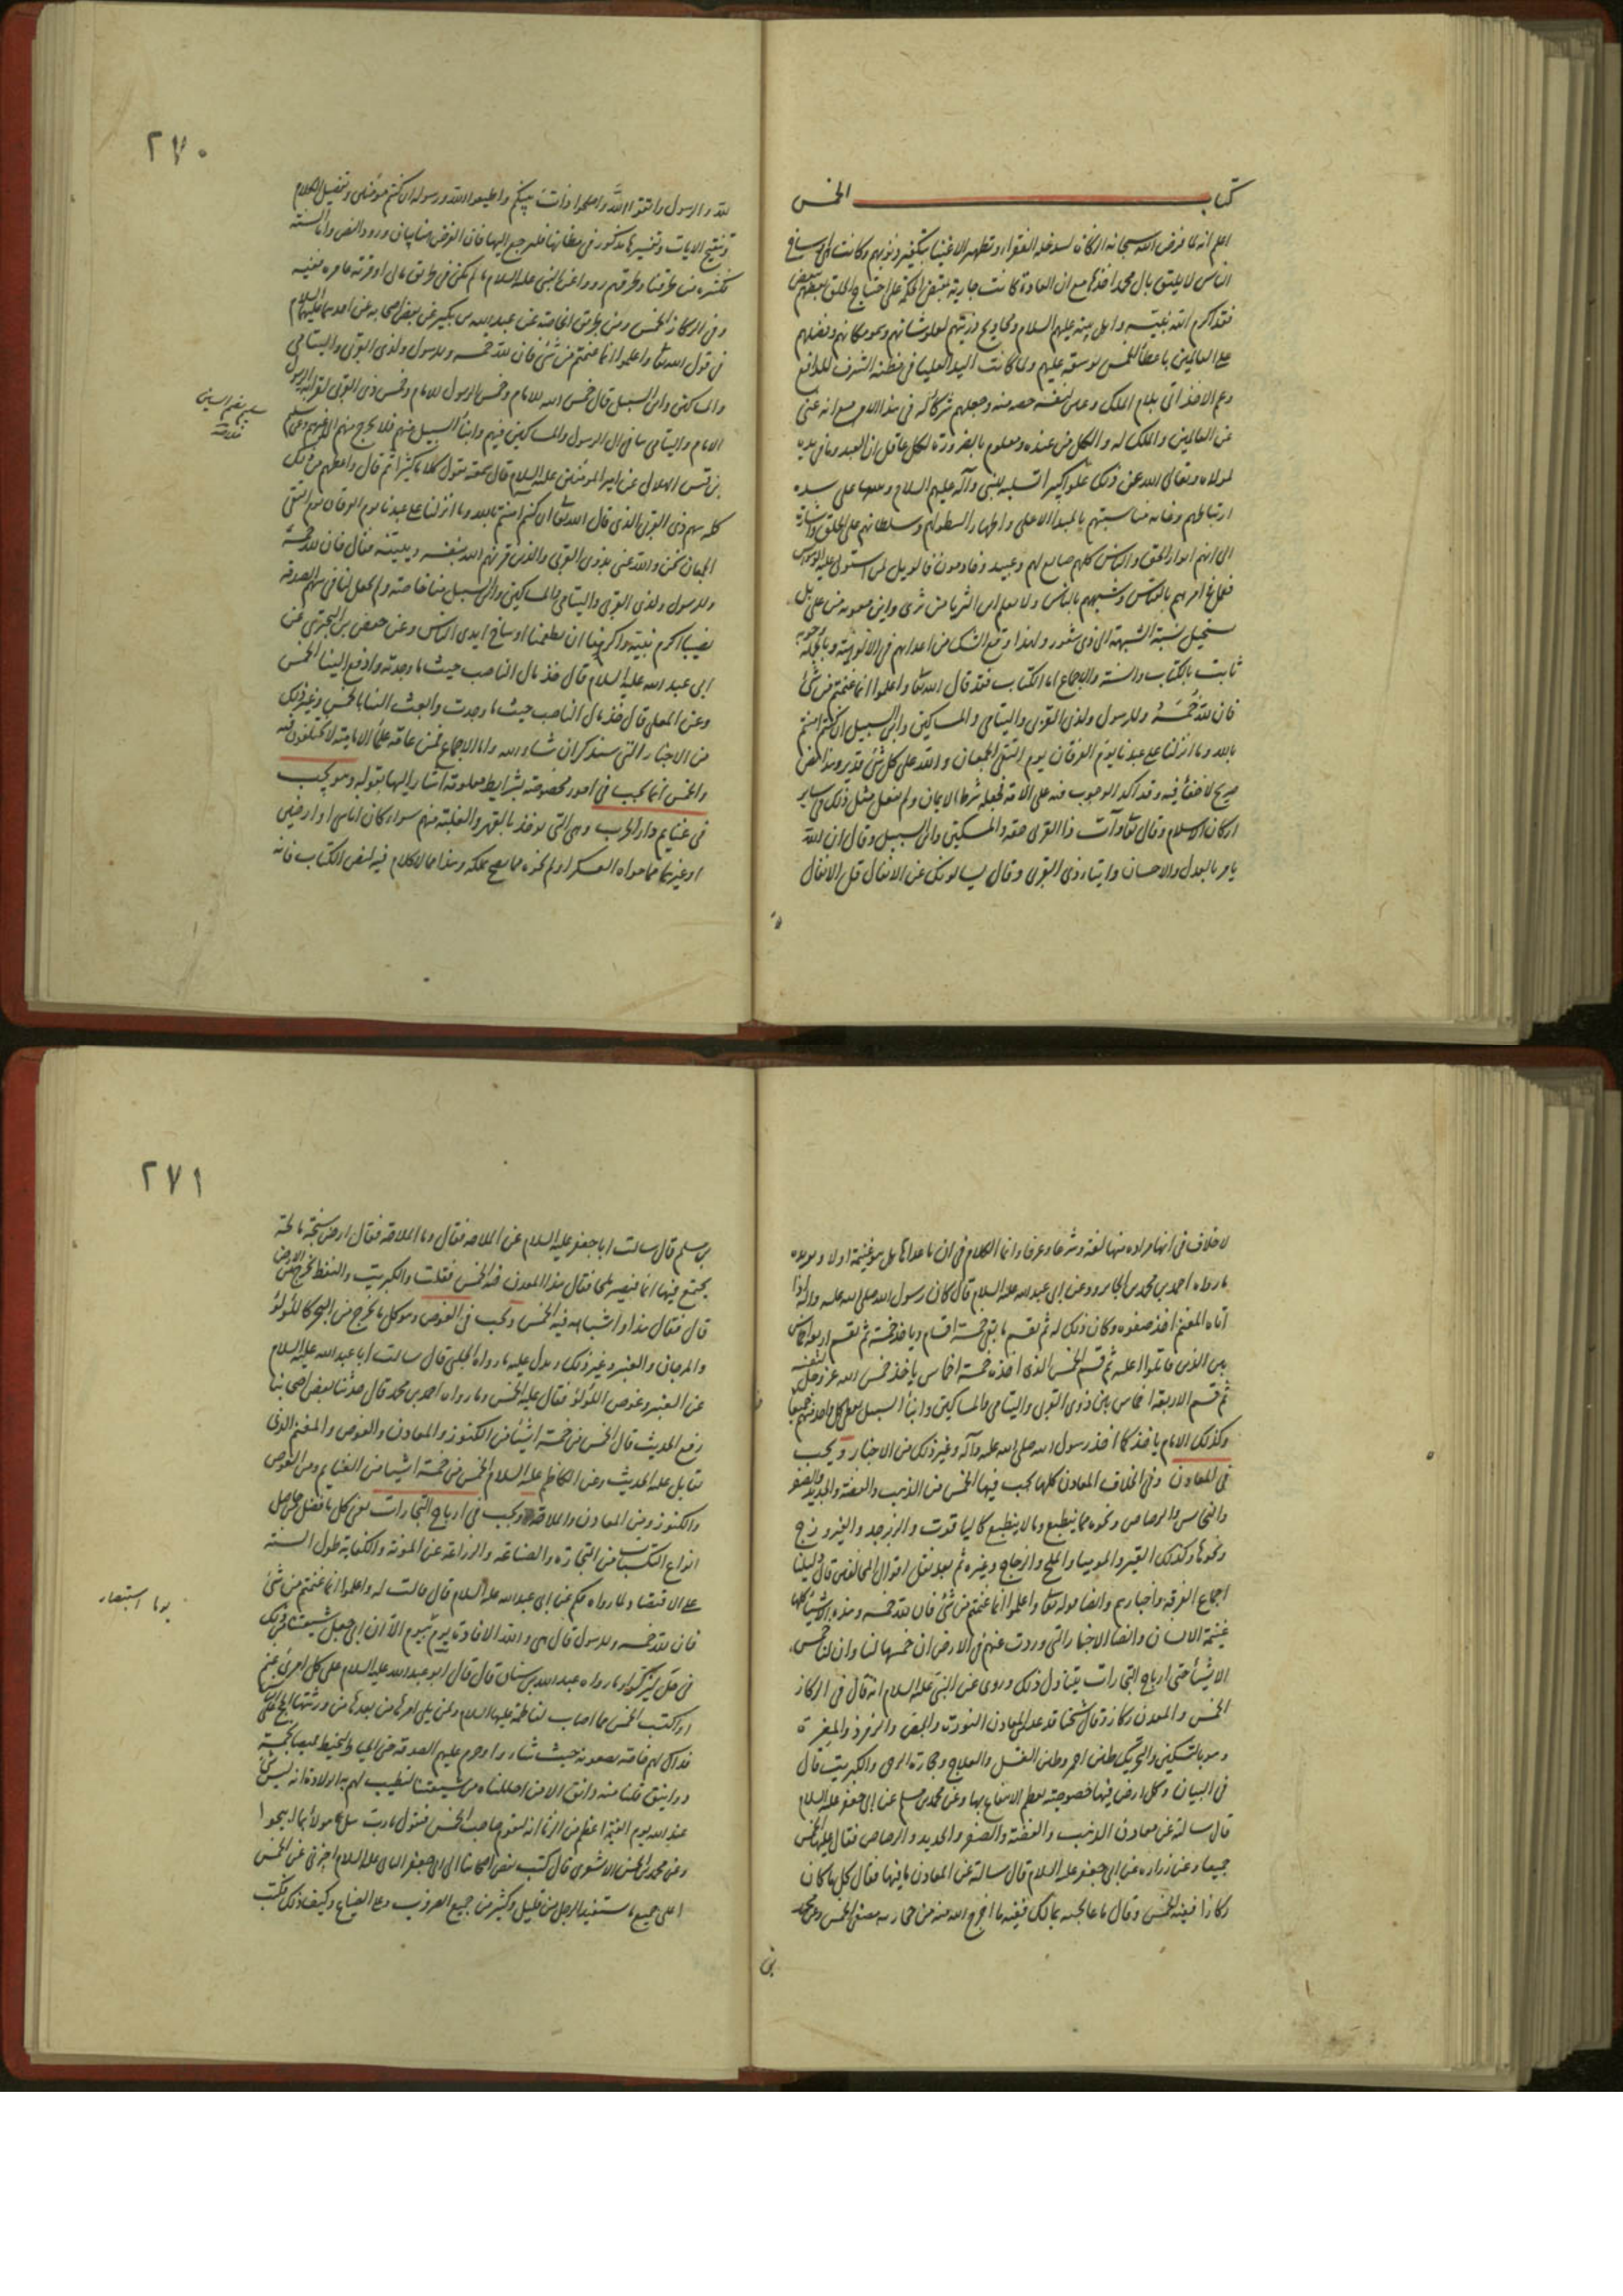 كتاب الخمس
اعلم انه لما فرض الله سبحانه الزكاة لسد خلة الفقراء وتطهير الاغنيا بتكفير ذنوبهم وكانت اوساخ
الناس لا يليق بال محمد اخذها مع ان العادة كانت جارية بمقتضى الحكمة على احتياج الخلق بعضهم ببعض
فقد اكرم الله نبيه واهل بيته عليهم السلام ذريتهم لعلو شانهم وسمو مكانهم وفضلهم
على العالمين باعطا الخمس توسعة عليهم ولما كانت اليد العليا في مظنة الشرف للدافع
دعم الاخذ اتى بلام الملك وعين لنفسه حصة منه وجعلهم شركائه في هذا الامر مع انه غنى
عن العالمين والملك له والكل من عنده ومعلوم بالضرورة لكل عاقل ان العبد وما في يده
لمولاه وتعالى الله عن ذلك علوا كبيرا لنبى وآله عليهم السلام
ارتباطهم مناسبتهم بالمبدأ الاعلى واظهارا لسطوتهم وسلطانهم على الخلق واشارة
الى انهم ابواب الحق والناس كلهم لهم وعبيد وخادمون فالويل لمن استولى عليه
امرهم بالناس وشبههم بالناس ولا يعلم اين الثريا من ثرى واين معوية من على بل
يستحيل نسبة الشبهة الى ذى شعور ولهذا وقع الشك من اعدائهم في الالوهية وبالجملة وجوبه
ثابت بالكتاب والسنة والاجماع اما الكتاب فقد قال الله تعا واعلموا انما غنمتم من شئ
فان لله خمسه وللرسول ولذى القربى واليتامى والمساكين وابن السبيل ان كنتم امنتم
بالله وما انزلنا على عبدنا يوم الفرقان يوم التقى الجمعان والله على كل شئ قدير وهذا النص
صريح لا خفاء فيه وقد اكد الوجوب فيه على الامة بجعله شرط الايمان ولم يفعل مثل ذلك في ساير
اركان الاسلام وقال تعا وآت ذا القربى حقه والمسكين وابن السبيل وقال ان الله
يامر بالعدل والاحسان وايتاء ذى القربى وقال يسالونك عن الانفال قل الانفال
٢٧٠
لله والرسول فاتقوا الله واصلحوا ذات بينكم واطيعوا الله ورسوله ان كنتم مؤمنين وتفصيل الكلام
وتنقيح الايات وتفسيرها مذكور في مظانها فليرجع اليها فان الغرض هنا بيان ورود النص واما السنة
فكثيرة من طرقنا وطرقهم رووا عن النبى عليه السلام ما لم يكن في طريق ماتى او قرية عامرة ففيه
وفي الركاز الخمس ومن طريق الخاصة عن عبد الله بن بكير عن بعض اصحابه عن احدهما عليهما السلام
في قول الله تعا واعلموا انما غنمتم من شئ فان لله خمسه وللرسول ولذى القربى واليتامى
والمساكين وابن السبيل قال خمس الله للامام وخمس الرسول للامام وخمس ذى القربى لقرابة الرسول
الامام واليتامى يتامى ال الرسول والمساكين منهم وابناء السبيل منهم فلا يخرج منهم الى غيرهم وعن سليم
بن قيس الهلالى عن امير المؤمنين عليه السلام قال سمعته يقول كلاما كثيرا ثم قال واعطهم من ذلك
كله سهم ذى القربى الذى قال الله تعا ان كنتم امنتم بالله وما انزلنا على عبدنا يوم الفرقان يوم التقى
الجمعان نحن والله عنى بذوى القربى والذين قرنهم الله بنفسه وبنبيه فقال فان لله خمسه
وللرسول ولذى القربى واليتامى والمساكين وابن السبيل منا خاصة ولم يجعل لنا في سهم الصدقة
نصيبا اكرم نبيه واكرمنا ان يطعمنا اوساخ ايدى الناس وعن حفص بن البخترى عن
ابى عبد الله عليه السلام قال خذ مال الناصب حيث ما وجدته وادفع الينا الخمس
وعن المعلى قال خذ مال الناصب حيث ما وجدت وابعث الينا بالخمس وغير ذلك
من الاخبار التى سنذكر ان شاء الله واما الاجماع فمن عامة علماء الامامية لا يختلفون فيه
والخمس انما يجب في امور مخصوصة بشرايط معلومة اشار اليها بقوله وهو يجب
في غنايم دار الحرب وهى التى تؤخذ بالقهر والغلبة منهم سواء كان اناسى او ارضين
او غيرهما مما حواه العسكر او لم يحوه مما يصح تملكه وهذا مما لا كلام فيه لنص الكتاب فانه
لا خلاف في انها مرادة منها لغة وشرعا وعرفا وانما الكلام في ان ما عداها هل هو غنيمة اولا ويؤيده
ما رواه احمد بن محمد بن الجارود عن ابى عبد الله عليه السلام قال كان رسول الله صلى الله عليه واله اذا
اتاه المغنم اخذ صفوه وكان ذلك له ثم يقسم ما بقى خمسة اقسام وياخذ خمسه ثم يقسم اربعة اخماس
بين الذين قاتلوا عليه ثم قسم الخمس الذى اخذه خمسة اخماس ياخذ خمس الله عز وجل لنفسه
ثم قسم الاربعة اخماس بين ذوى القربى واليتامى والمساكين وابناء السبيل يعطى كل واحد منهم جميعا
وكذلك الامام ياخذ كما اخذ رسول الله صلى الله عليه وآله وغير ذلك من الاخبار ويجب
في المعادن وفي الخلاف المعادن كلها يجب فيها الخمس من الذهب والفضة والحديد والصفر
والنحاس والرصاص ونحوه مما ينطبع وما لا ينطبع كاليا قوت والزبرجد والفيروزج
ونحوها وكذلك القير والموميا والملح والزجاج وغيره ثم بعد نقل اقوال المخالفين قال دليلنا
اجماع الفرقة واخبارهم وايضا قوله تعا واعلموا انما غنمتم من شئ فان لله خمسه وهذه الاشياء كلها
غنيمة الانسان وايضا الاخبار التى وردت عنهم في الارض ان خمسها لنا وان لنا خمس
الاشيأ حتى ارباح التجارات يتناول ذلك وروى عن النبى عليه السلام انه قال في الركاز
الخمس والمعدن ركاز وقال شيخنا قد عد من المعادن النورة والجص والمغرة
وهو بالتسكين والتحريك طين احمر وطين الغسل والعلاج وحجارة الرحى والكبريت قال
في البيان وكل ارض فيها خصوصية يعظم الانتفاع بها وعن محمد بن مسلم عن ابى جعفر عليه السلام
قال سالته عن معادن الذهب والفضة والصفر والحديد والرصاص فقال عليها الخمس
جميعا وعن زرارة عن ابى جعفر عليه السلام قال سالته عن المعادن ما فيها فقال كل ما كان
ركازا ففيه الخمس وقال ما عالجته بمالك ففيه ما اخرج الله منه من حجارته مصفى الخمس وعن محمد
بن
٢٧١
بن مسلم قال سالت ابا جعفر عليه السلام عن الملاحة فقال وما الملاحة فقال ارض سبخة مالحة
يجتمع فيها الما فيصير ملحا فقال هذا المعدن فيه الخمس فقلت والكبريت والنفط يخرج من الارض
قال فقال هذا واشباهه فيه الخمس ويجب في الغوص وهو كل ما يخرج من البحر كاللؤلؤ
والمرجان والعنبر وغير ذلك ويدل عليه ما رواه الحلبى قال سالت ابا عبد الله عليه السلام
عن العنبر وغوص اللؤلؤ فقال عليه الخمس وما رواه احمد بن محمد قال حدثنا بعض اصحابنا
رفع الحديث قال الخمس من خمسة اشيأ من الكنوز والمعادن والغوص والمغنم الذى
يقاتل عليه الحديث وعن الكاظم عليه السلام الخمس من خمسة اشيا من الغنايم ومن الغوص
والكنوز ومن المعادن والملاحة ويجب في ارباح التجارات يعنى كل ما فضل من حاصل
انواع التكسبات من التجارة والصناعة والزراعة عن المؤنة والكفاية طول السنة
على الاقتصاد ولما رواه حكيم عن ابى عبد الله عليه السلام قال قلت له واعلموا انما غنمتم من شئ
فان لله خمسه وللرسول قال هى والله الافادة يوم بيوم الا ان ابى جعل شيعتنا من ذلك
في حل ليزكوا وما رواه عبد الله بن سنان قال قال ابو عبد الله عليه السلام على كل امرئ غنم
او اكتسب الخمس مما اصاب لفاطمة عليها السلام ولمن يلى امرها من بعدها من ورثتها الحجج على الناس
فذاك لهم خاصة يضعونه حيث شاءوا وحرم عليهم الصدقة حتى الخياط ليخيط قميصا بخمسة
دوانيق فلنا منه دانق الا من احللناه من شيعتنا لتطيب لهم به الولادة انه ليس شئ
عند الله يوم القيمة اعظم من الزنا انه ليقوم صاحب الخمس فيقول يا رب سل هؤلاء بما ابيحوا
وعن محمد بن الحسن الاشعرى قال كتب بعض اصحابنا الى ابى جعفر الثانى عليه السلام اخبرنى عن الخمس
اعلى جميع ما يستفيد الرجل من قليل وكثير من جميع الضروب وعلى الضياع وكيف ذلك فكتب